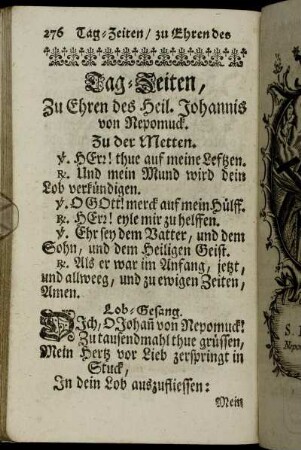 276 Tag-Zeiten / zu Ehren des
Tag-Zeiten,
Zu Ehren des Heil. Johannis
von Nepomuck.
Zu der Metten.
℣. HErr! thue auf meine Leftzen.
℟. Und mein Mund wird dein
Lob verkündigen.
℣. O GOtt! merck auf mein Hülff.
℟. HErr! eyle mir zu helffen.
℣. Ehr sey dem Vatter, und dem
Sohn, und dem Heiligen Geist.
℟. Als er war im Anfang, jetzt,
und allweeg, und zu ewigen Zeiten,
Amen.
Lob-Gesang.
DIch, O Johañ von Nepomuck!
Zu tausendmahl thue grüssen,
Mein Hertz vor Lieb zerspringt in
Stuck,
In dein Lob auszufliessen:
Mein
S.
Nepo